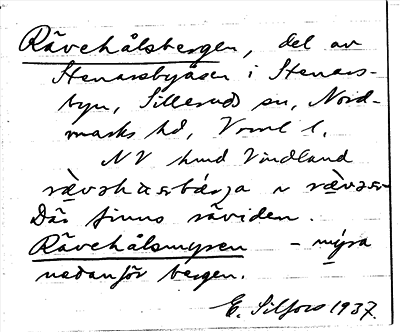 Rävehålsbergen, del av
Stenarsbyåsen i Stenars-
byn, Sillerud sn, Nord-
marks hd, Vrml l.
NV hmd Vindland
Där finns räviden.
Rävehålsmyren – myra
nedanför bergen.
E. Silfors 1937.